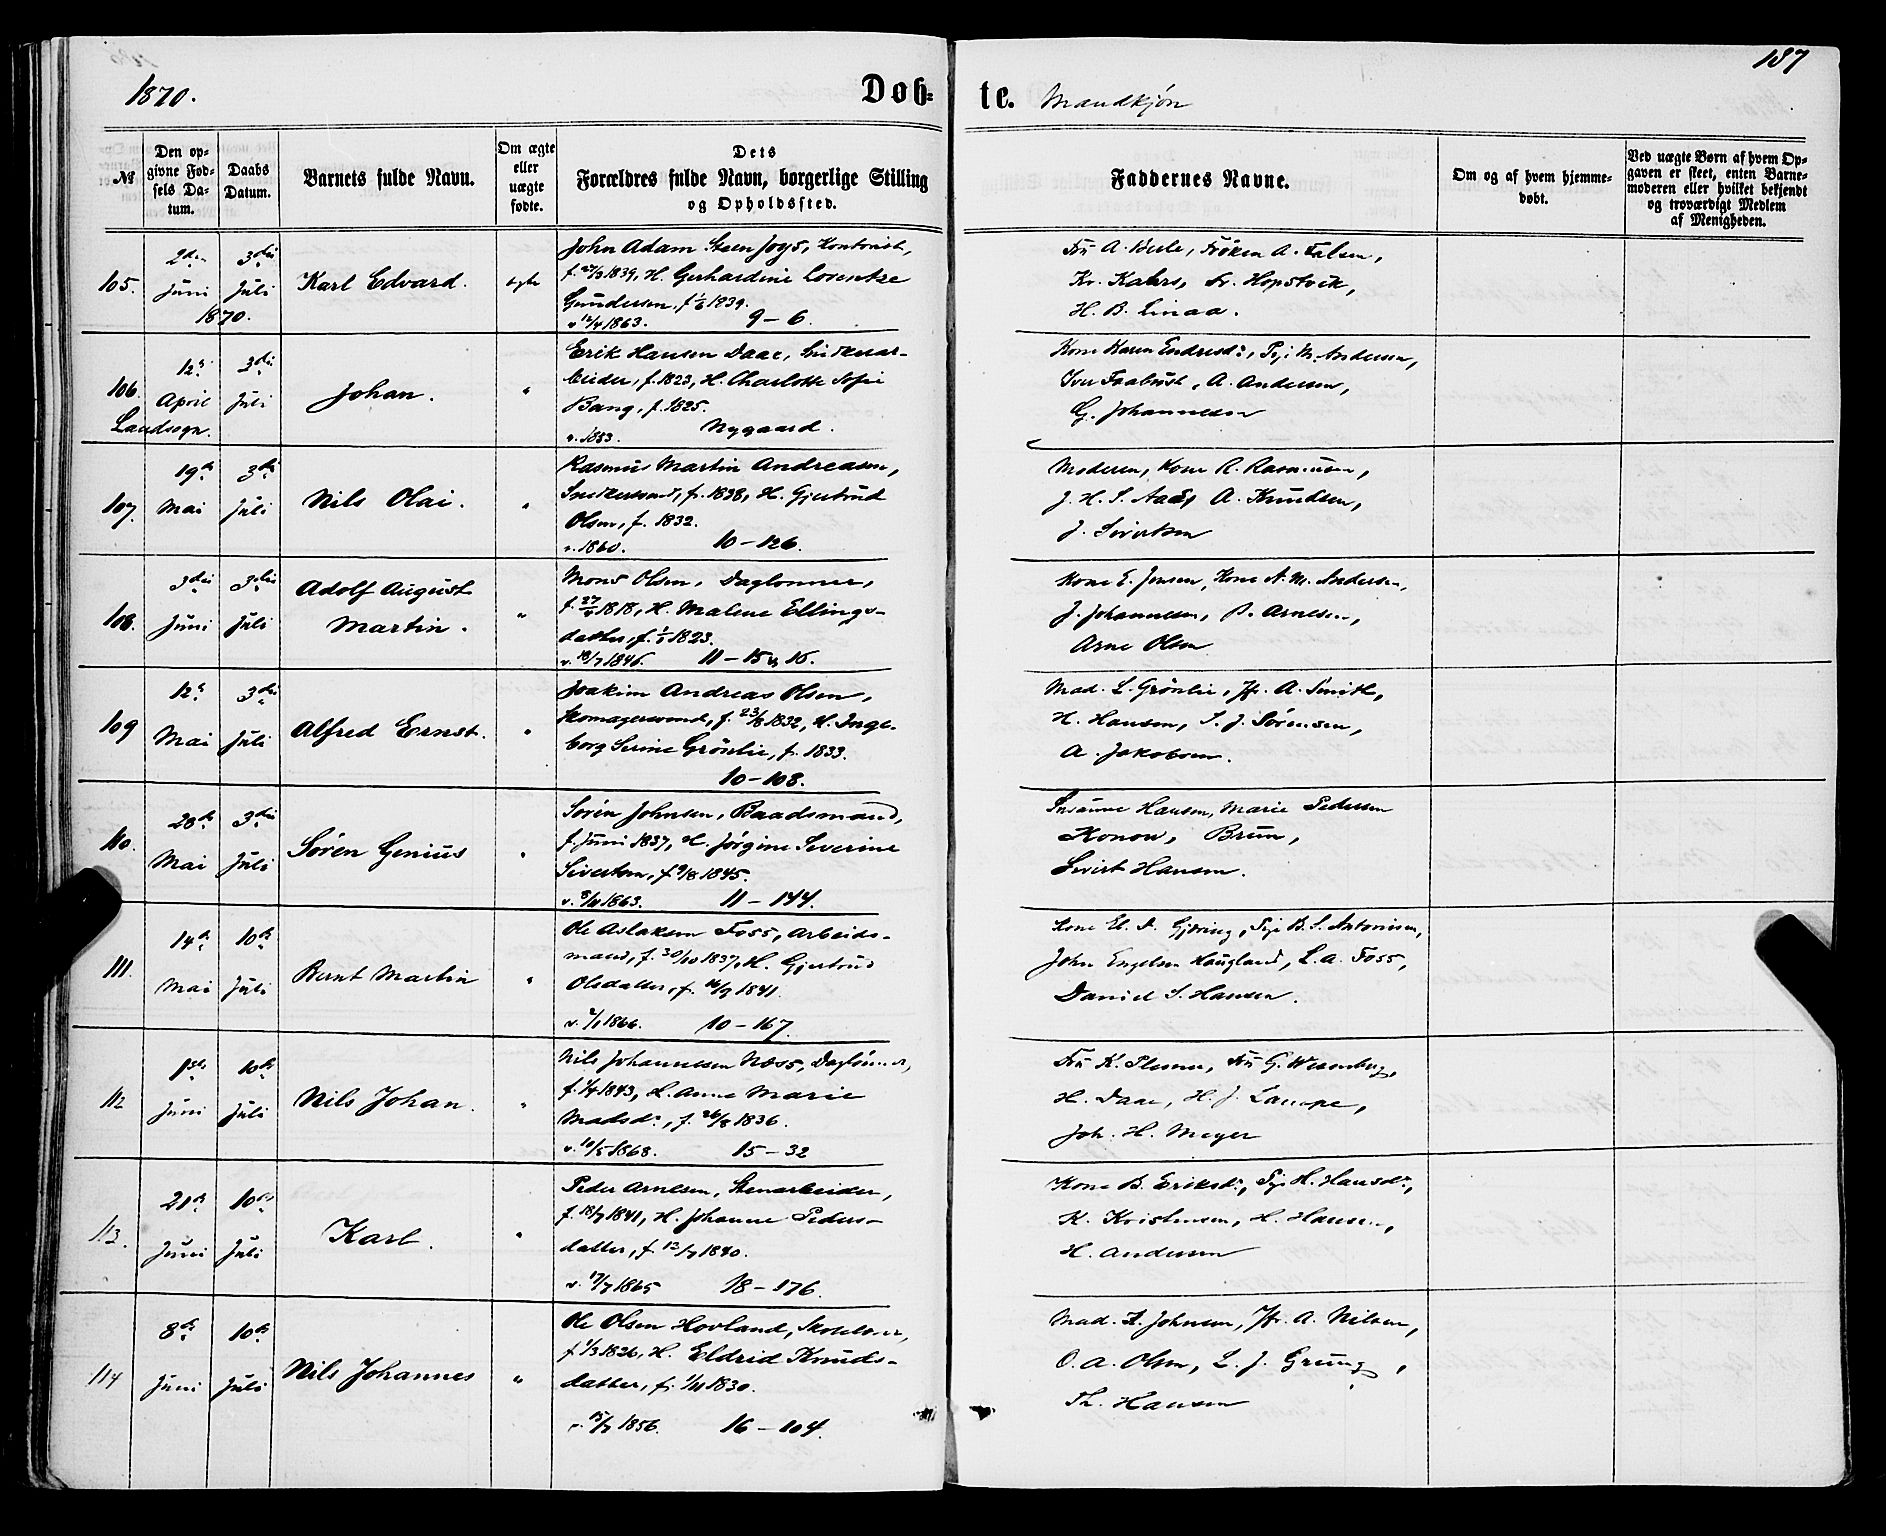 187
1870.
Døb-
te. Mandkjøn
№
Den op-
givne Fød-
sels Da-
tum.
Daabs
Datum.
Barnets fulde Navn.
Om ægte
eller
uægte
fødte.
Dets
Forældres fulde Navn, borgerlige Stilling
og Opholdssted.
Faddernes Navne.
Om og af hvem hjemme-
døbt.
Ved uægte Børn af hvem Op-
gaven er skeet, enten Barne-
moderen eller hvilket bekjendt
og troværdigt Medlem
af Menigheden.
105.
2den
Juni
1870.
3die
Juli
Karl Edvard.
ægte
John Adam Steen Joys, Kontorist,
f. 1839, H. Gerhardine Lorentze
Gundersen, f. 1839.
v. 12/4 1863. 9 – 6.
Fru A. Berle, Frøken A. Falsen,
Kr. Kahrs, Fr. Hopstock,
H. B. Linaa.
106.
Landsogn.
12te
April
3die
Juli
Johan.
"
Erik Hansen Daae, Snikkerar-
beider, f. 1823, H. Charlotte Sofie
Bang, f. 1825.
v. 1853. Nygaard.
Kone Karen Endresdr, Pige M. Andersen,
Iver Faabust, A. Andersen,
G. Johannesen
107.
19de
Mai
3die
Juli
Nils Olai.
"
Rasmus Martin Andreasen,
Snikkersvend, f. 1838, H. Gjertrud
Olsen, f. 1832.
v. 1860. 10 – 126.
Moderen, Kone R. Rasmusen,
J. H. S. Aae, A. Knudsen,
J. Sivertsen
108.
3die
Juni
3die
Juli
Adolf August
Martin.
"
Mons Olsen, Daglønner,
f. 1818, H. Malene Ellings-
datter, f. 1823.
v. 18/7 1846. 11 – 15 & 16.
Kone E. Jensen, Kone A. M. Andersen,
J. Johannesen, P. Arnesen,
Arne Olsen
109
12te
Mai
3die
Juli
Alfred Ernst.
"
Joakim Andreas Olsen,
Skomagersvend, f. 23/8 1832, H. Inge-
borg Serine Grönlie, f. 1833.
10 – 108.
Mad. L. Grönlie, Jfr. A. Smith,
H. Hansen, S. J. Sörensen,
A. Jakobsen.
110.
28de
Mai
3die
Juli
Sören Genius
"
Sören Johnsen, Baadsmand,
f. Juni 1837, H. Jørgine Severine
Sivertsen, f. 9/8 1845.
v. 8/11 1863. 11 – 144.
Susanne Hansen, Marie Pedersen
Konow, Brun,
Sivert Hansen.
111.
14de
Mai
10de
Juli
Bernt Martin
"
Ole Aslaksen Foss, Arbeids-
mand, f. 30/10 1837, H. Gjertrud
Olsdatter, f. 16/9 1841.
v. 1866. 10 – 167.
Kone El. D. Gjöring, Pige B. S. Antonisen,
John Engelsen Haugland, L. A. Foss,
Daniel S. Hansen.
112
1ste
Juni
10de
Juli
Nils Johan.
"
Nils Johannesen Næss, Daglönner,
f. 1/4 1843, L. Anne Marie
Madsdr, f. 26/8 1836.
v. 10/5 1868. 15 – 32
Fru K. Plesner, Fru G. Wesenberg,
H. Daae, H. J. Lampe,
Joh. H. Meyer
113.
21de
Juni
10de
Juli
Karl.
"
Peder Arnesen, Stenarbeider,
f. 18/7 1841, H. Johanne Peders-
datter, f. 12/7 1840.
v. 17/7 1865 18 – 176.
Kone B. Eriksdr, Pige H. Hansdr,
K. Kristensen, H. Hansen,
H. Andersen
114
8de
Juni
10de
Juli
Nils Johannes
"
Ole Olsen Hovland, Skoleholder,
f. 1/3 1826, H. Eldrid Knuds-
datter, f. 1/11 1830.
v. 15/7 1856. 16 – 104.
Mad. L. Johnsen, Jfr. A. Nilsen,
O. A. Olsen, L. J. Grung,
Th. Hansen